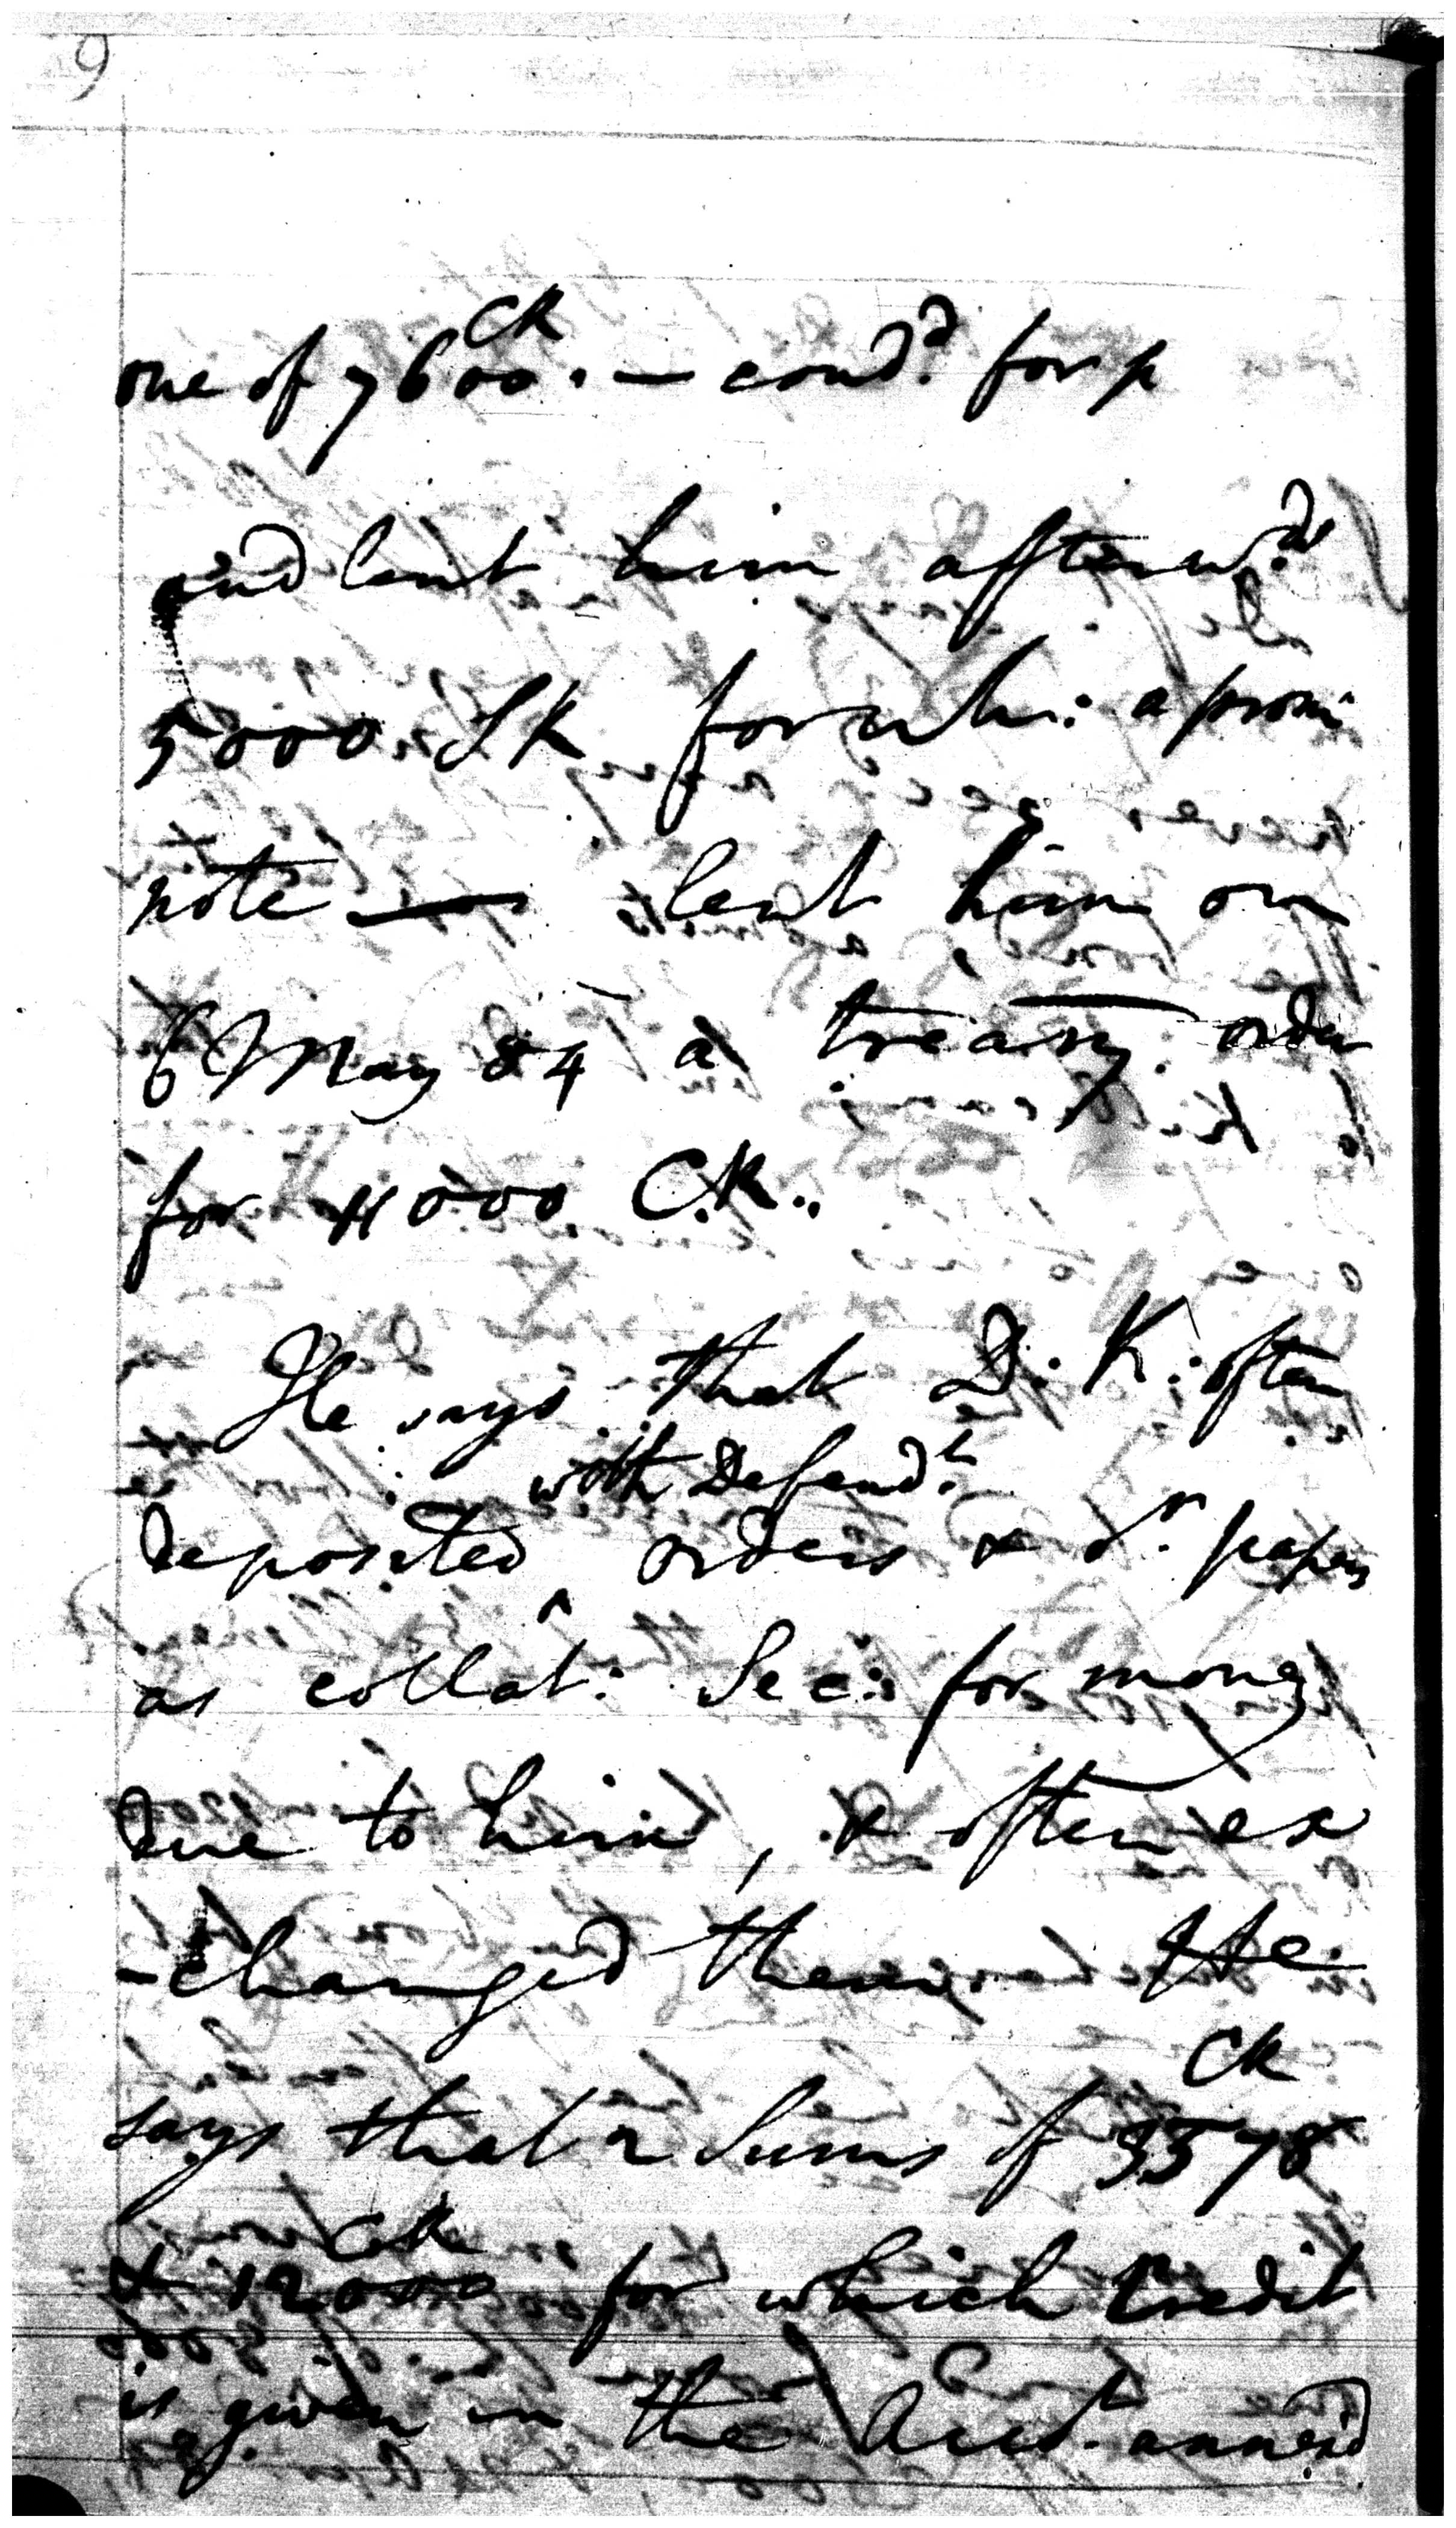 9
CR
one of 7600. — cond.d for p
and lent him afterw.ds
5000 SR for wh: a prom
note — lent him on
6 May 84 a treasy order
for 11000 C.R..
He says that D: K: often
with Defend.t
deposited ^ orders & or. papers
as collat: Sec: for money
due to him, & often ex
-changed them. He
CR
says that 2 Sums of 3578
CR
& 12000 for which Credit
is given in the Acct. annexd